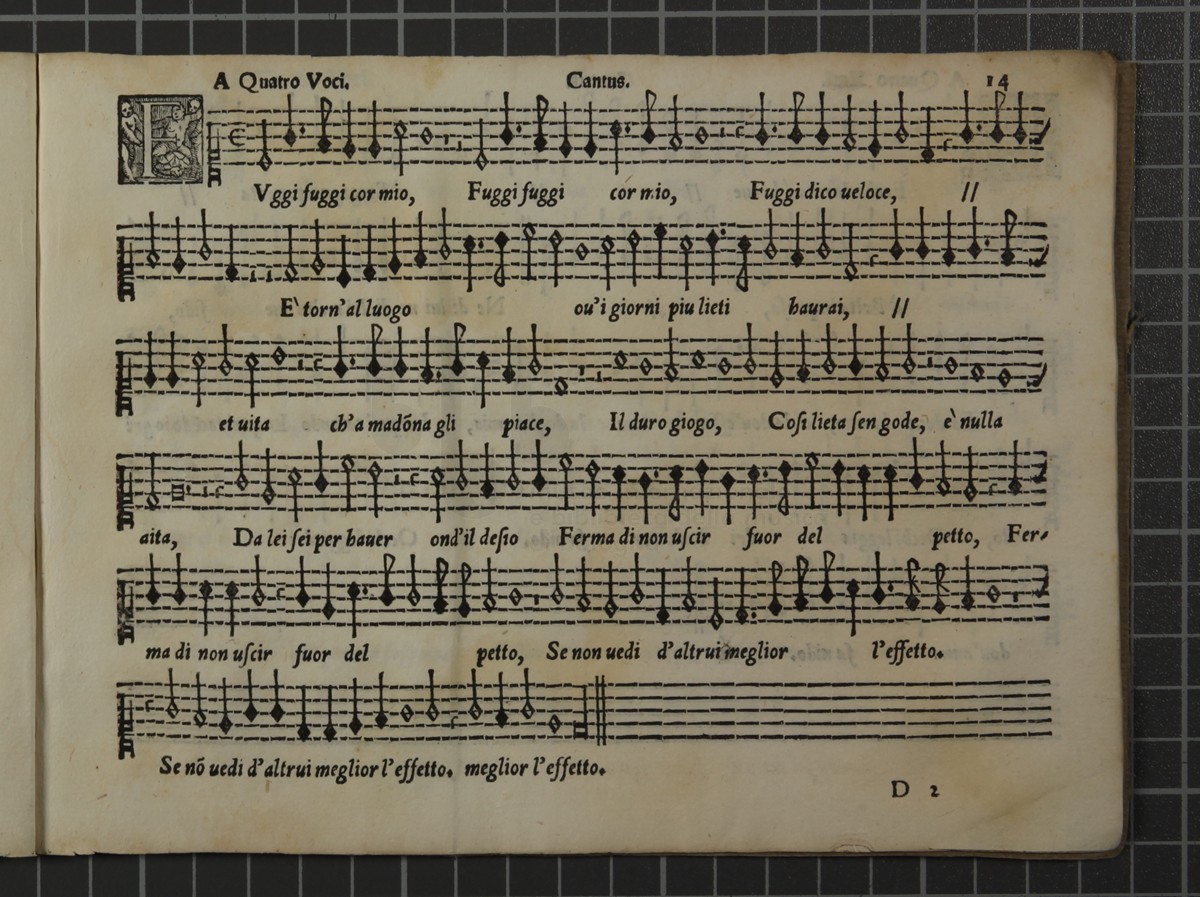 A Quatro Voci. Cantus. 14
FVggi fuggi cor mio, Fuggi fuggi cor mio, Fuggi dico ueloce, //
E` torn'al luogo ou'i giorni piu lieti haurai, //
et uita ch'a madõna gli piace, Il duro giogo, Cosi lieta sen gode, è nulla
aita, Da lei sei per hauer ond'il desio Ferma di non uscir fuor del petto, Fer-
ma di non uscir fuor del petto, Se non uedi d'altrui meglior l'effetto.
Se nõ uedi d'altrui meglior l'effetto. meglior l'effetto.
D 2